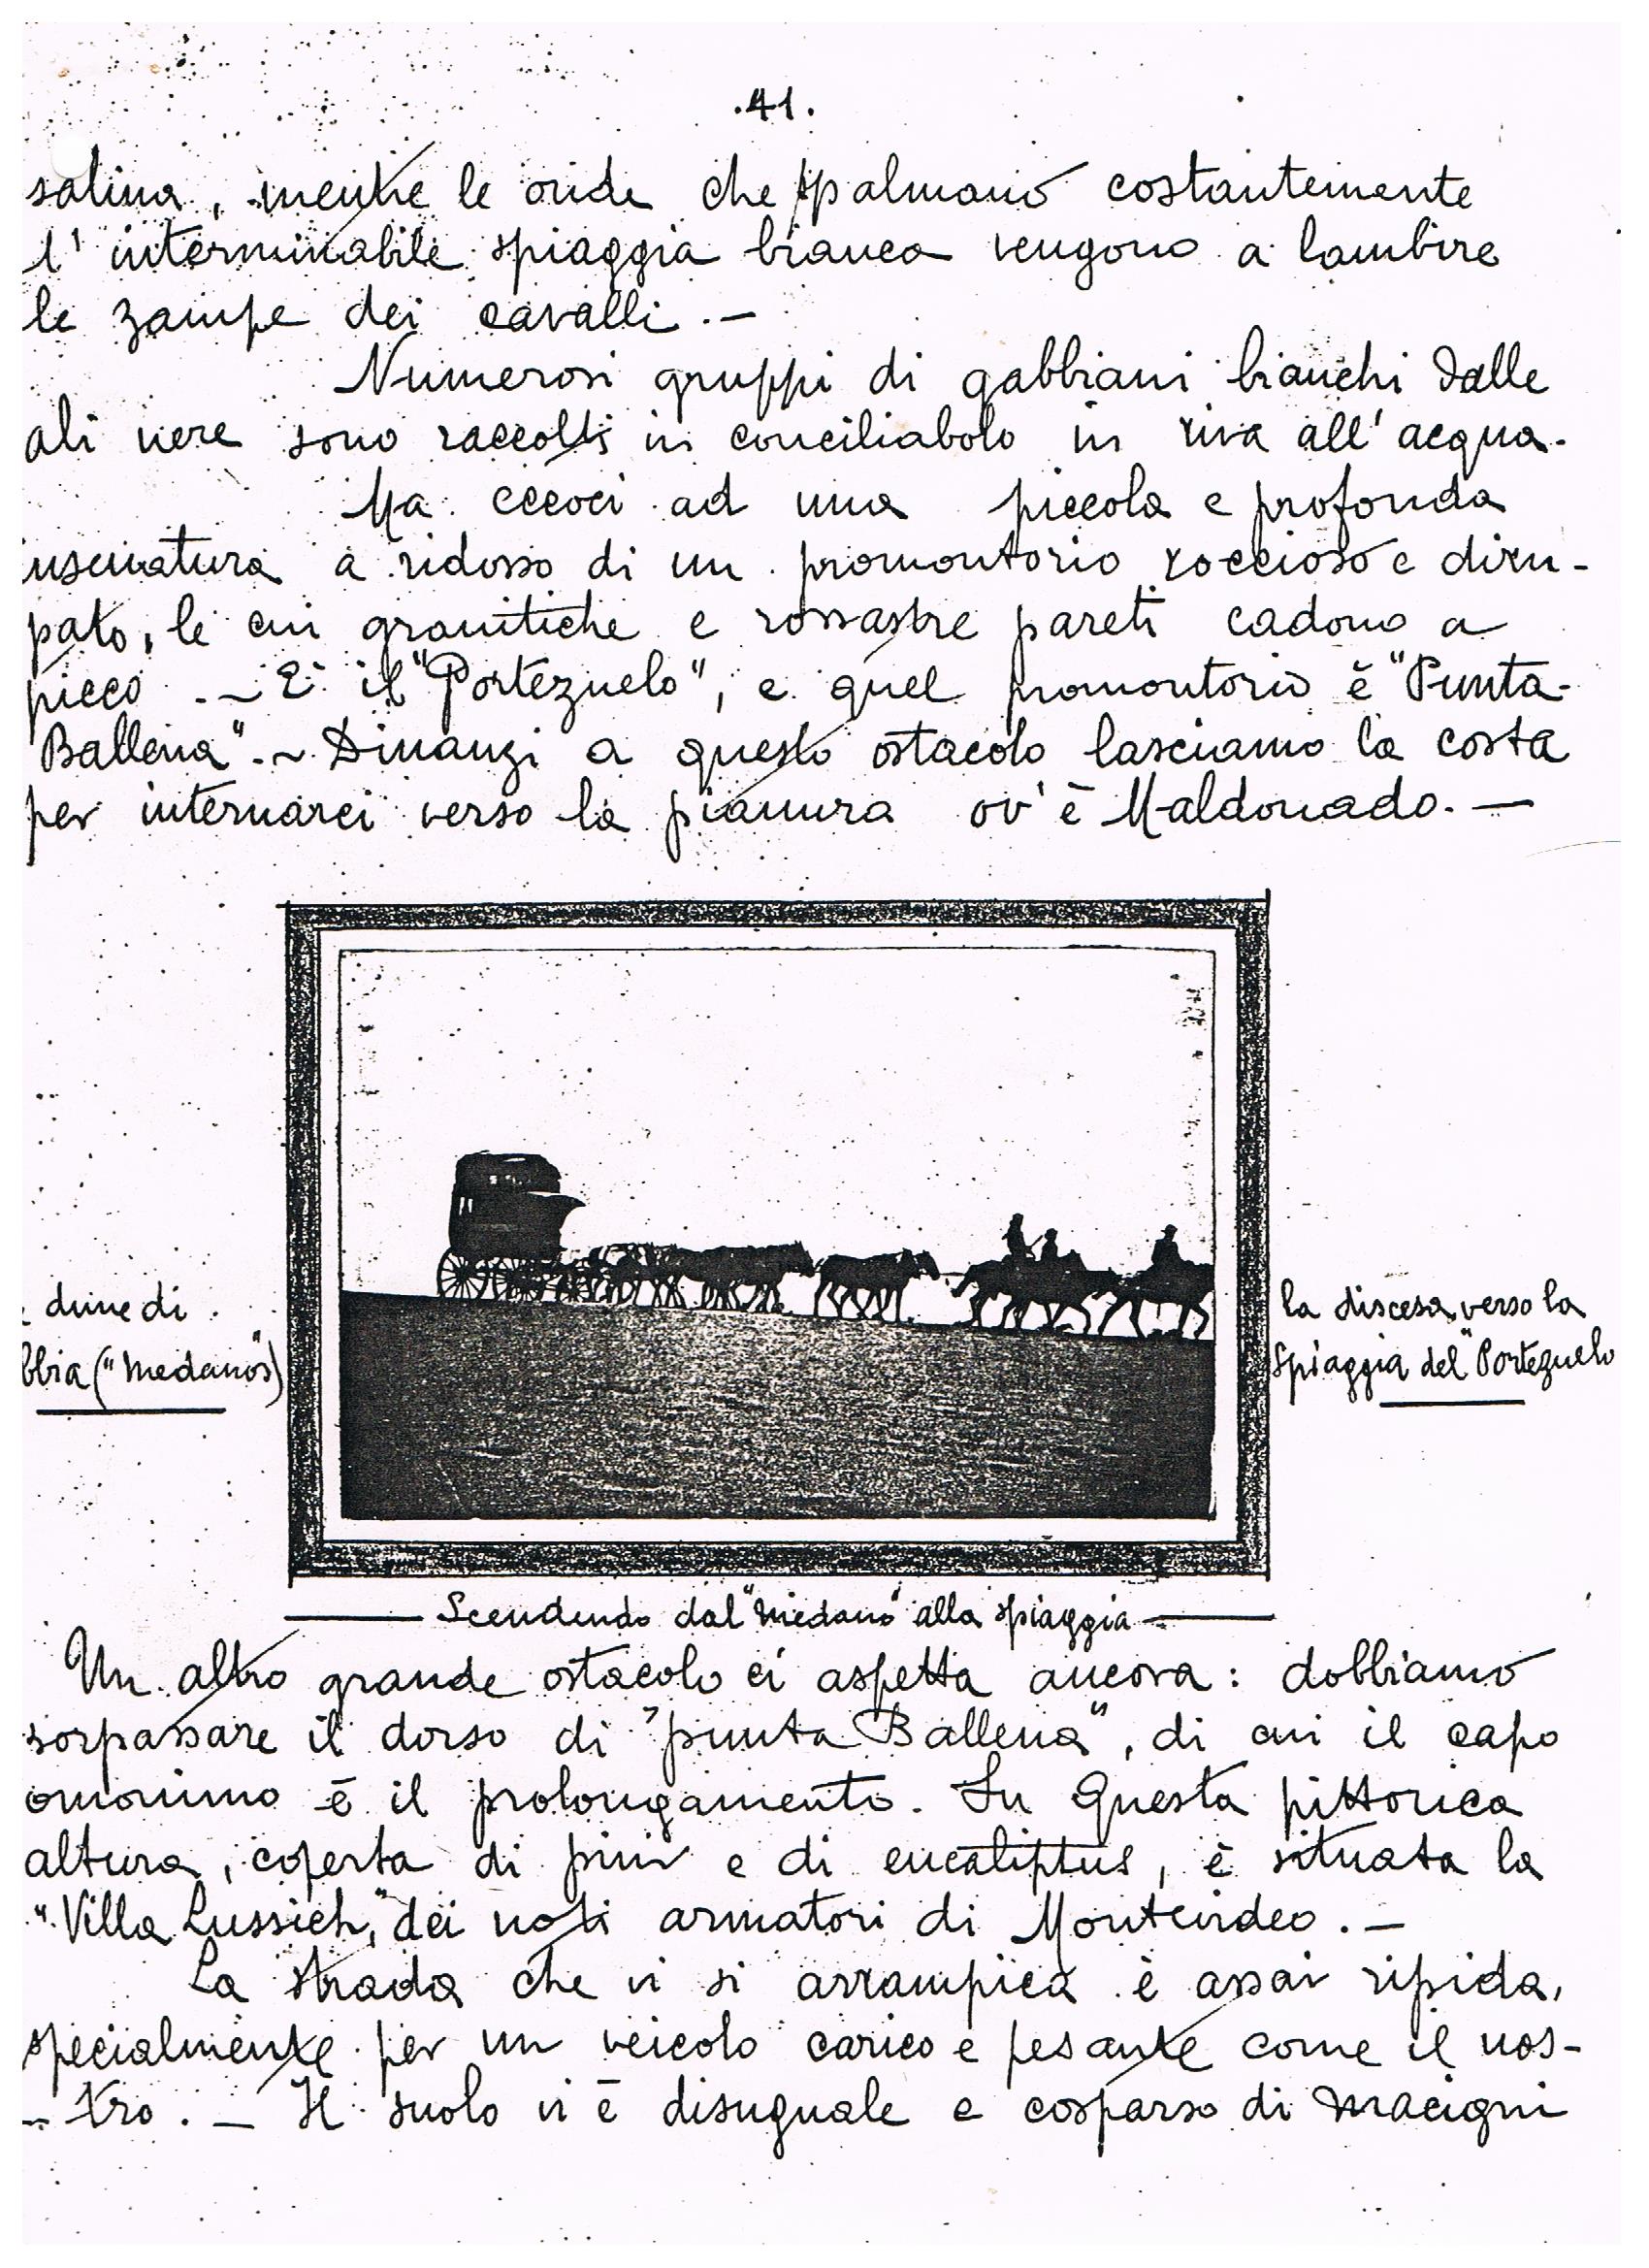 .41.
salina, mentre le onde che spalmano costantemente
l'interminabile spiaggia bianca vengono a lambire
le zampe dei cavalli.—
Numerosi gruppi di gabbiani bianchi dalle
ali nere sono raccolti in conciliabolo in riva all'acqua.
Ma eccoci ad una piccola e profonda
insenatura a ridosso di un promontorio roccioso e diru-
pato, le cui granitiche e rossastre pareti cadono a
picco.—E' il "Portezuelo", e quel promontorio è "Punta-
Ballena".— Dinanzi a questo ostacolo lasciamo la costa
per internarci verso la pianura ov'è Maldonado.—
dune di
bbia ("medanos")
la discesa verso la
spiaggia del "Portezuelo
Scendendo dal "medano" alla spiaggia
Un altro grande ostacolo ci aspetta ancora: dobbiamo
sorpassare il dorso di "punta Ballena", di cui il capo
omonimo è il prolungamento. Su questa pittorica
altura, coperta di pini e di eucaliptus, è situata la
"Villa Lussich," dei noti armatori di Montevideo.—
La strada che vi si arrampica è assai ripida,
specialmente per un veicolo carico e pesante come il nos-
-tro.— Il suolo vi è disuguale e cosparso di macigni